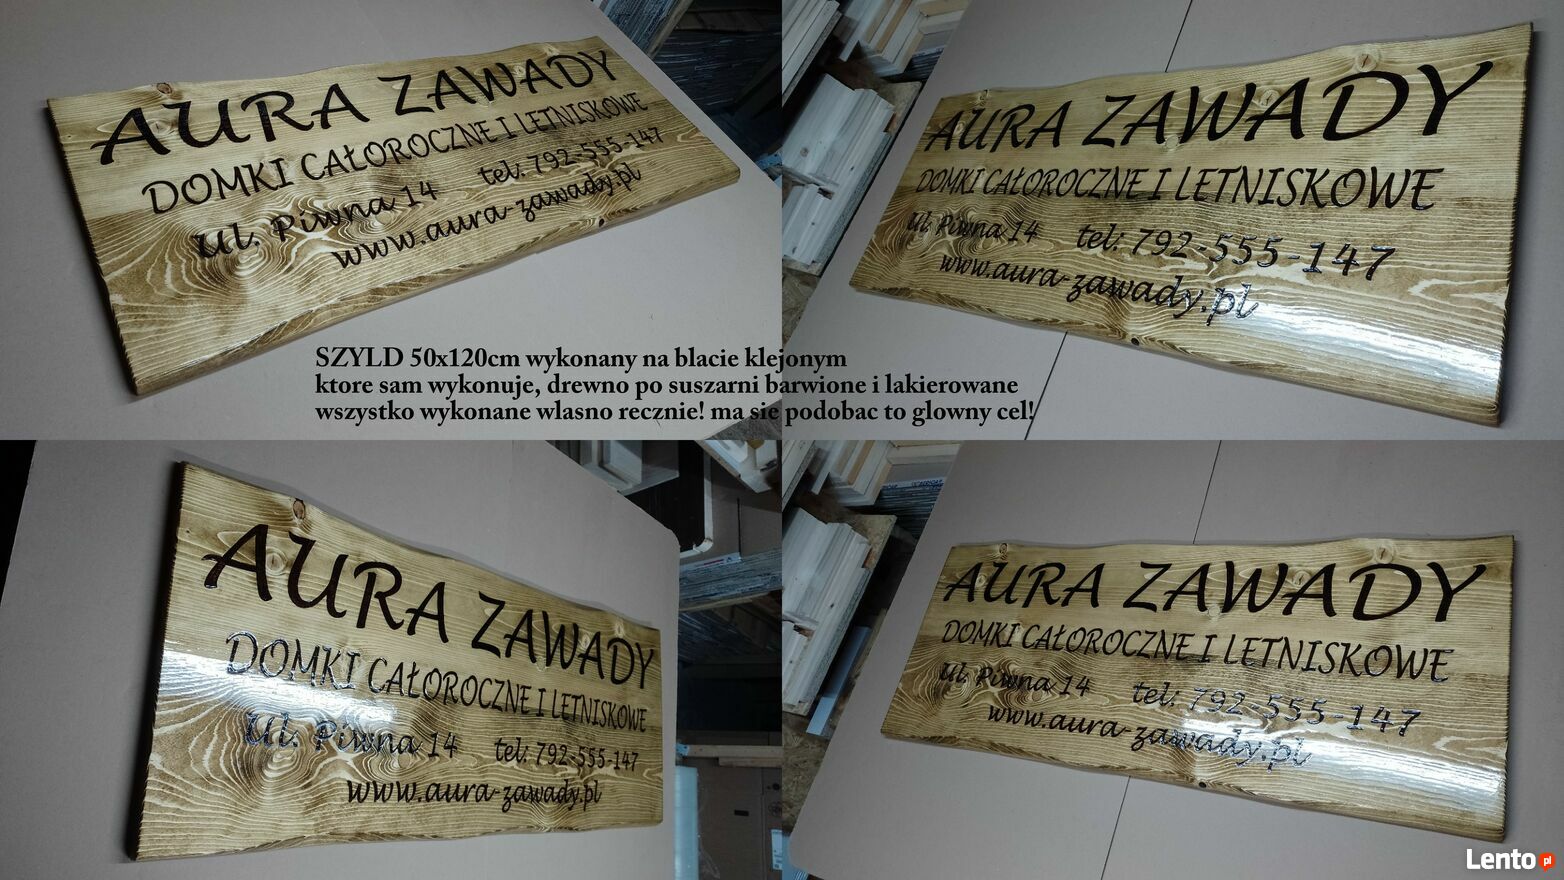 AURA ZAWADY
DOMKI CAŁOROCZNE I LETNISKOWE
ul. Piwna 14 tel: 792-555-147
www.aura-zawady.pl
AURA ZAWADY
DOMKI CAŁOROCZNE I LETNISKOWE
ul. Piwna 14 tel: 792-555-147
www.aura-zawady.pl
SZYLD 50x120cm wykonany na blacie klejonym
ktore sam wykonuje, drewno po suszarni barwione i lakierowane
wszystko wykonane wlasno recznie! ma sie podobac to glowny cel!
AURA ZAWADY
DOMKI CAŁOROCZNE I LETNISKOWE
ul. Piwna 14 tel: 792-555-147
www.aura-zawady.pl
AURA ZAWADY
DOMKI CAŁOROCZNE I LETNISKOWE
ul. Piwna 14 tel: 792-555-147
www.aura-zawady.pl
Lento pl